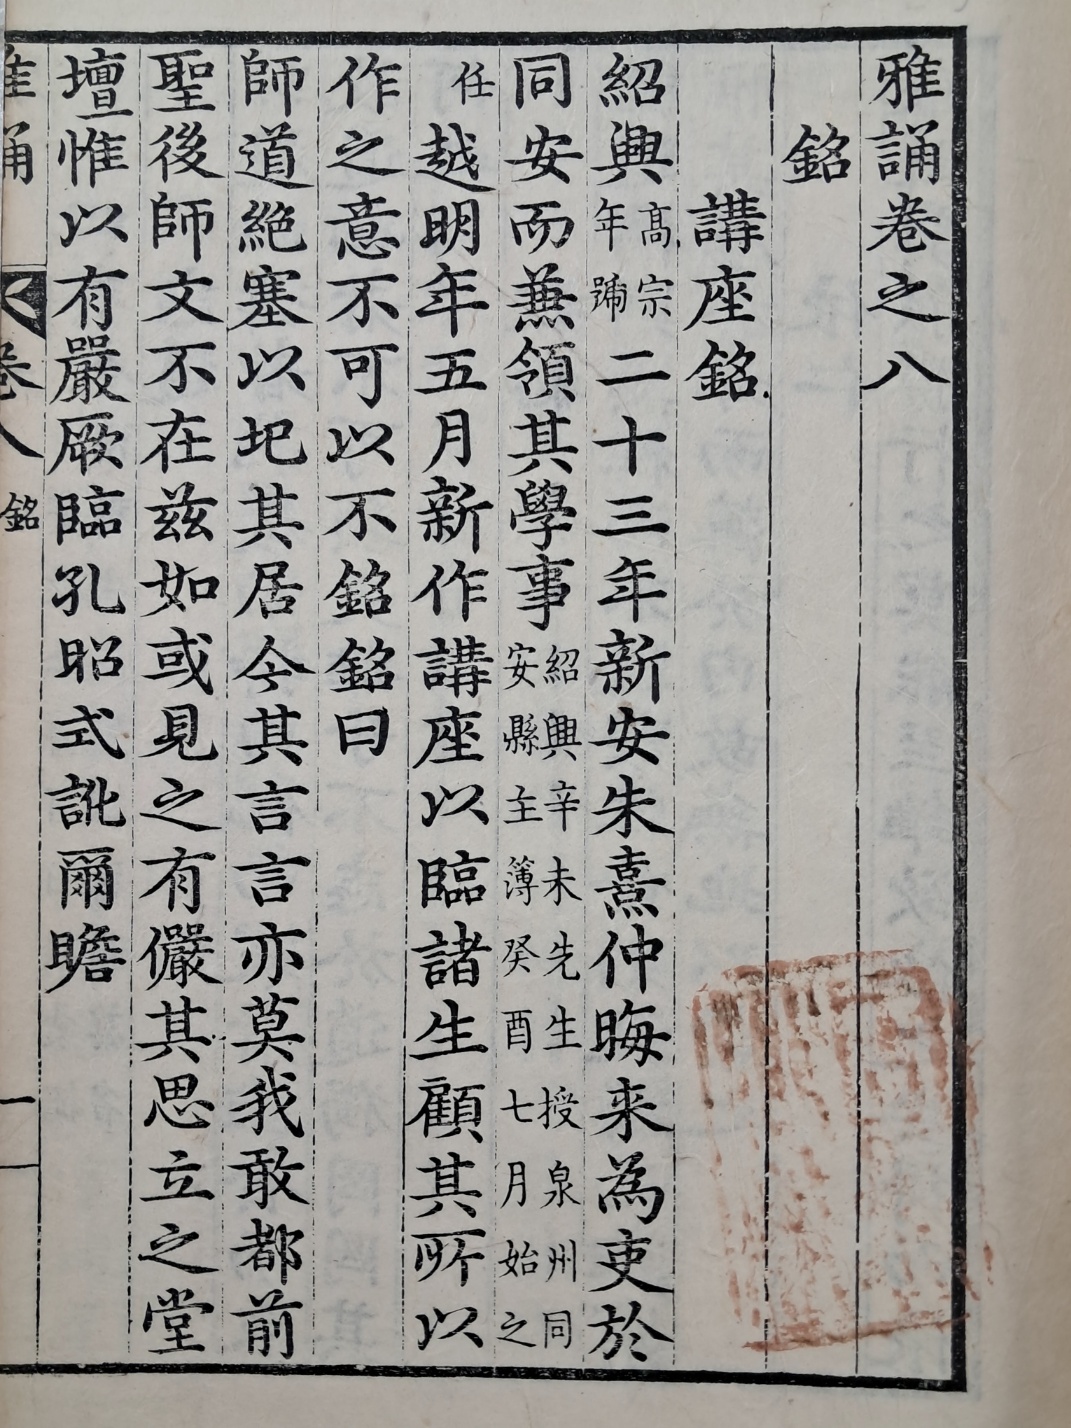 雅誦卷之八
銘
講座銘
紹興高宗年號二十三年新安朱熹仲晦来為吏於
同安而兼領其學事紹興辛未先生授泉州同安縣主簿癸酉七月始之
任越明年五月新作講座以臨諸生顧其所以
作之意不可以不銘銘曰
師道絕塞以圮其居今其言言亦莫我敢都前
聖後師文不在玆如或見之有儼其思立之堂
壇惟以有嚴厥臨孔昭式訛爾瞻
雅誦 卷八 銘 一